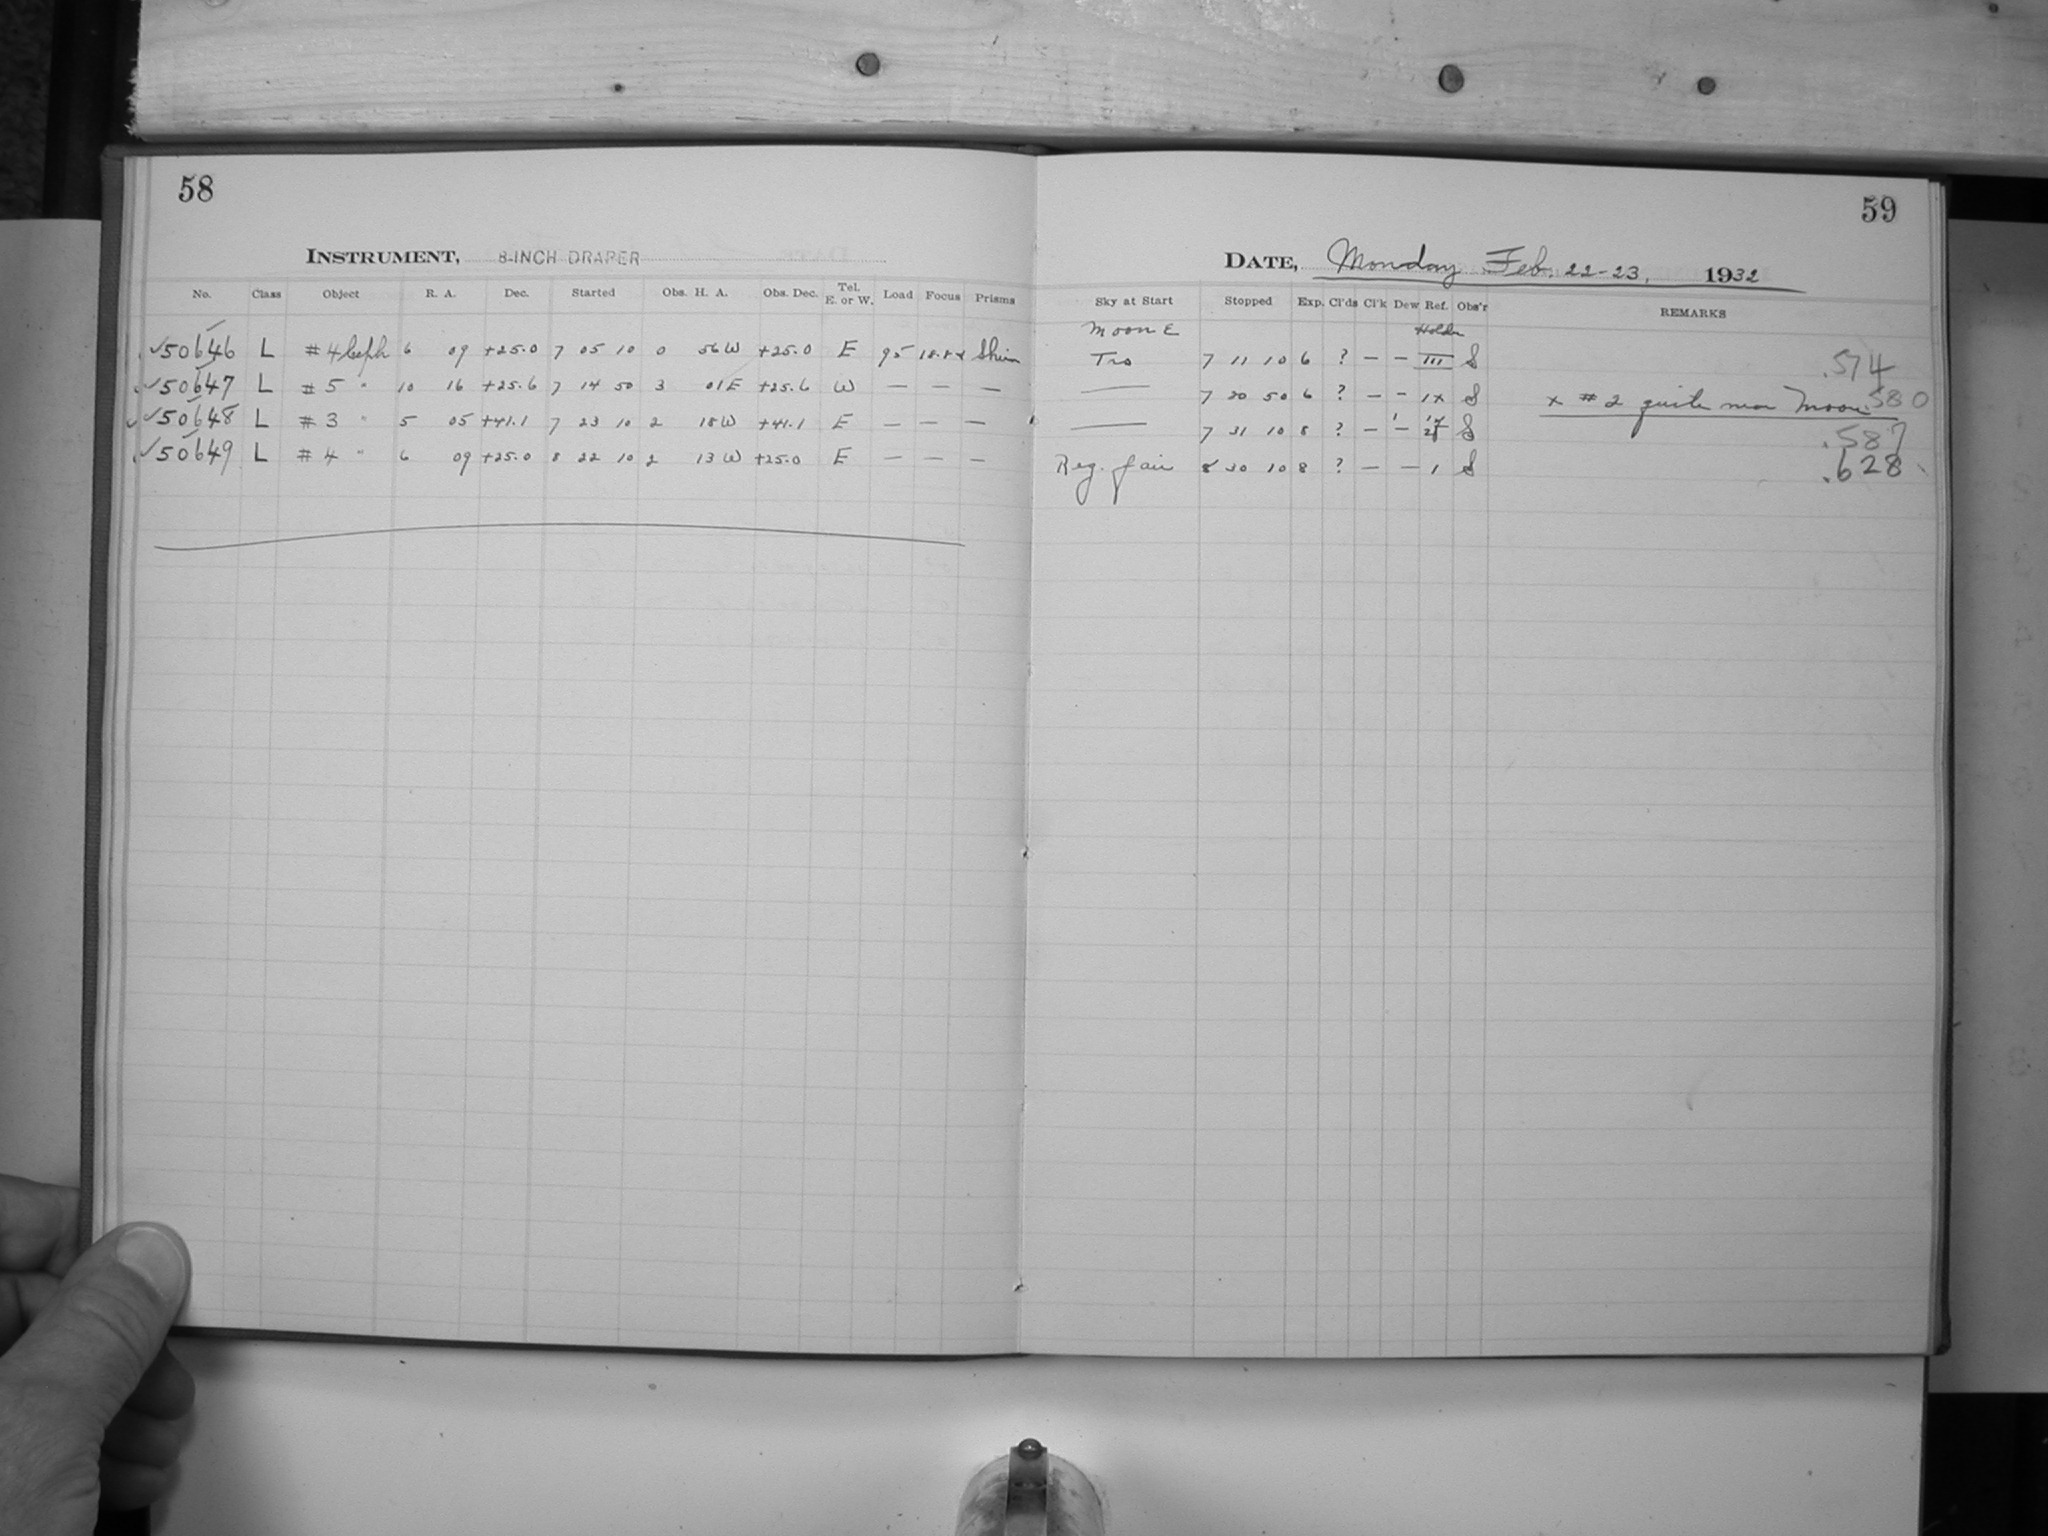 58
INSTRUMENT, 8-INCH DRAPER
No. Class Object R. A. Dec. Started Obs. H. A. Obs. Dec. Tel. E. or W. Load Focus Prisms
50646 L #4 Ceph 6 09 +25.0 7 05 10 0 56 W +25.0 E 95 18.84
50647 L #5 " 10 16 +25.6 7 14 50 3 01 E +25.6 W — — —
50648 L #3 " 5 05 +41.1 7 23 10 2 18 W +41.1 E — — —
50649 L #4 " 6 09 +25.0 8 22 10 2 13 W +25.0 E — — —
59
DATE, Monday Feb. 22-23, 1932
Sky at Start Stopped Exp. Cl'ds Cl'k Dew Ref. Obs'r REMARKS
Moon E Holder
7 11 10 6 ? — — III S .574
— 7 20 50 6 ? — — 1x S x #2 quite near Moon .580
— 7 31 10 8 ? — — S .587
Reg. fair 8 30 10 8 ? — — 1 S .628